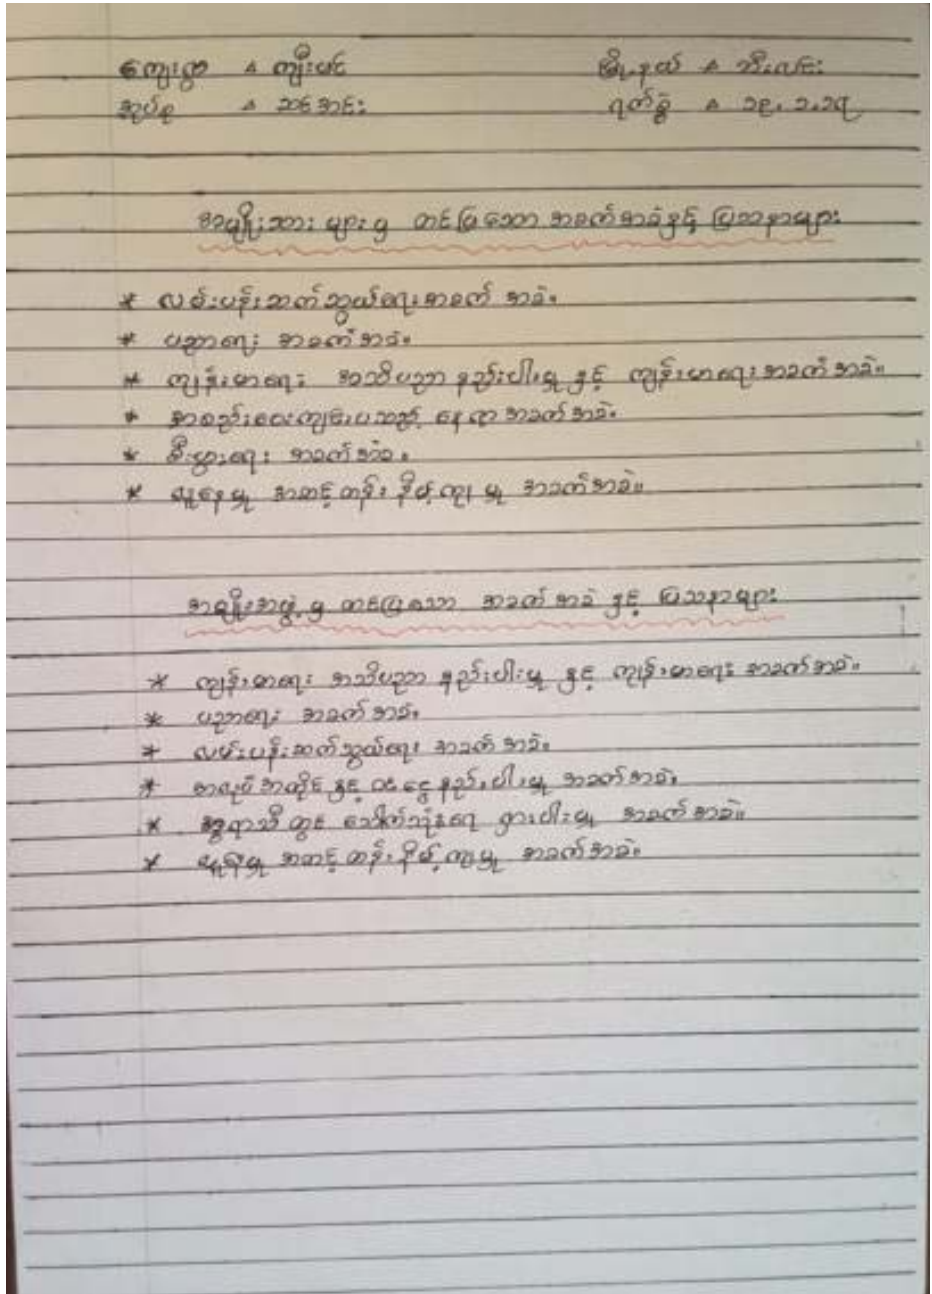 ကျေးရွာ - ကျိုးပင် မြို့နယ် - ဘီးလင်း
အုပ်စု - ဆင်အင်း ရက်စွဲ - ၁၉.၁.၁၇
အမျိုးသား များမှ တင်ပြသော အခက်အခဲနှင့် ပြဿနာများ
* လမ်းပန်းဆက်သွယ်ရေးအခက် အခဲ။
* ပညာရေး အခက်အခဲ။
* ကျန်းမာရေး အသိပညာ နည်းပါးမှု နှင့် ကျန်းမာရေးအခက်အခဲ။
* အစည်းဝေးကျင်းပသည့် နေရာအခက်အခဲ။
* စီးပွားရေး အခက်အခဲ။
* လူနေမှု အဆင့်တန်း နိမ့်ကျ မှု အခက်အခဲ။
အမျိုးအဖွဲ့မှ တင်ပြသော အခက်အခဲ နှင့် ပြဿနာများ
* ကျန်းမာရေး အသိပညာ နည်းပါးမှု နှင့် ကျန်းမာရေး အခက်အခဲ။
* ပညာရေး အခက်အခဲ။
* လမ်းပန်းဆက်သွယ်ရေး အခက်အခဲ။
* အလုပ်အကိုင် နှင့် ဝင်ငွေနည်းပါးမှု အခက်အခဲ။
* နွေရာသီ တွင် သောက်သုံးရေ ရှားပါးမှု အခက်အခဲ။
* လူနေမှု အဆင့်တန်း နိမ့်ကျမှု အခက်အခဲ။